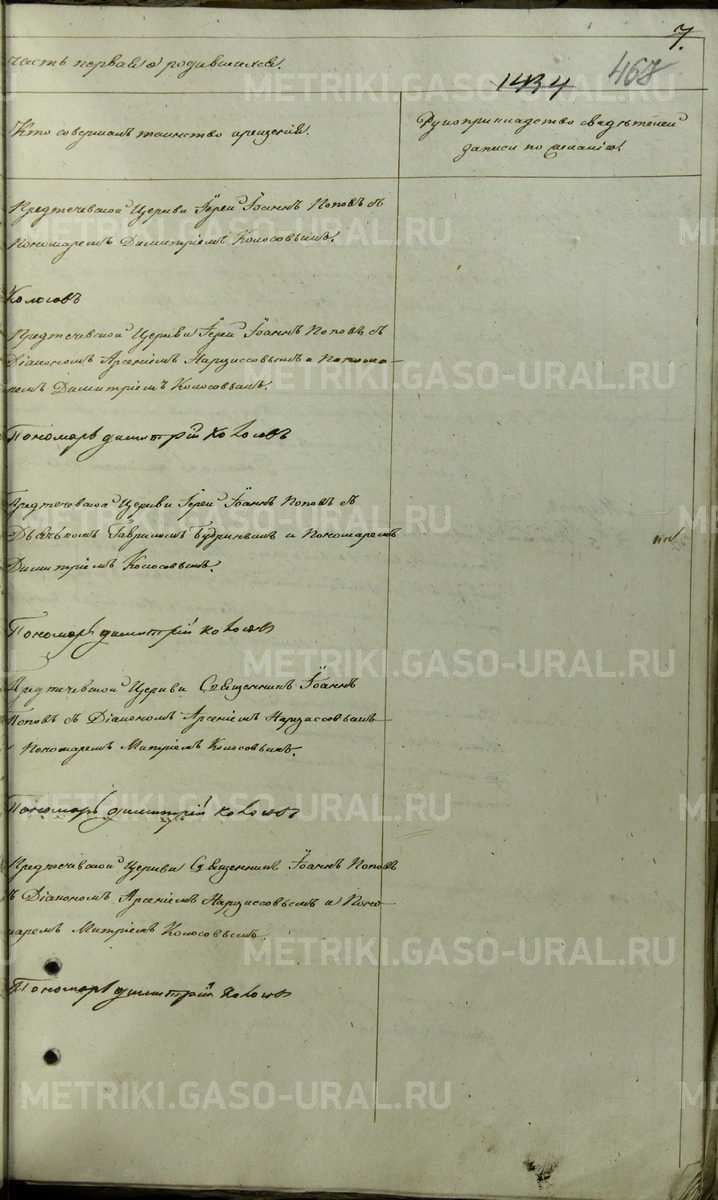 7.
часть первая о родившихся.
1434 468
Кто совершалъ таинство крещенія.
Рукоприкладство свидѣтелей
записи по желанію.
Предтечевской Церкви Іерей Іоаннъ Поповъ съ
Пономаремъ Димитріемъ Колосовымъ.
Колосовъ
Предтечевской Церкви Іерей Іоаннъ Поповъ съ
Діакономъ Арсеніемъ Нарциссовымъ и Понома-
ремъ Димитріемъ Колосовымъ.
Пономарь Димитрій Колосовъ
Предтечевской Церкви Іерей Іоаннъ Поповъ съ
Дьячкомъ Гавриломъ и Пономаремъ
Димитріемъ Колосовымъ.
Пономарь Димитрій Колосовъ
Предтечевской Церкви Священникъ Іоаннъ
Поповъ съ Діакономъ Арсеніемъ Нарциссовымъ
Пономаремъ Митріемъ Колосовымъ.
Пономарь Димитрій Колосовъ
Предтечевской Церкви Священникъ Іоаннъ Поповъ
ъ Діакономъ Арсеніемъ Нарциссовымъ и Поно-
маремъ Митріемъ Колосовымъ.
Пономарь Димитрій Колосовъ
METRIKI.GASO-URAL.RU